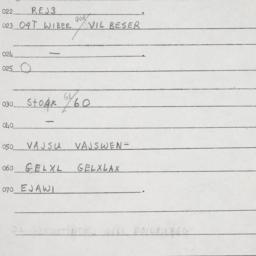 022 REJ3
023 OGT WIBER / VIL BESER
024 —
025 O
030 STOAK /60
040 —
050 VAJSU VAJSWEN-
060 GELXL GELXLAX
070 EJAWI